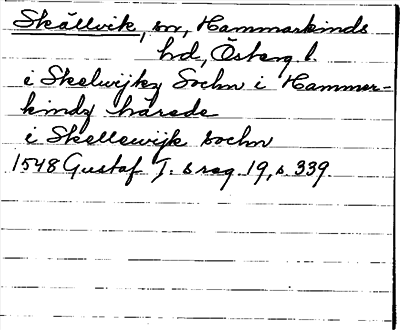 Skällvik, sn, Hammarkinds
hd, Österg l.
i Skelwijkz Sochn i Hammer-
kindz härede
i Skellewijk sochn
1548 Gustaf I:s reg. 19, s. 339.